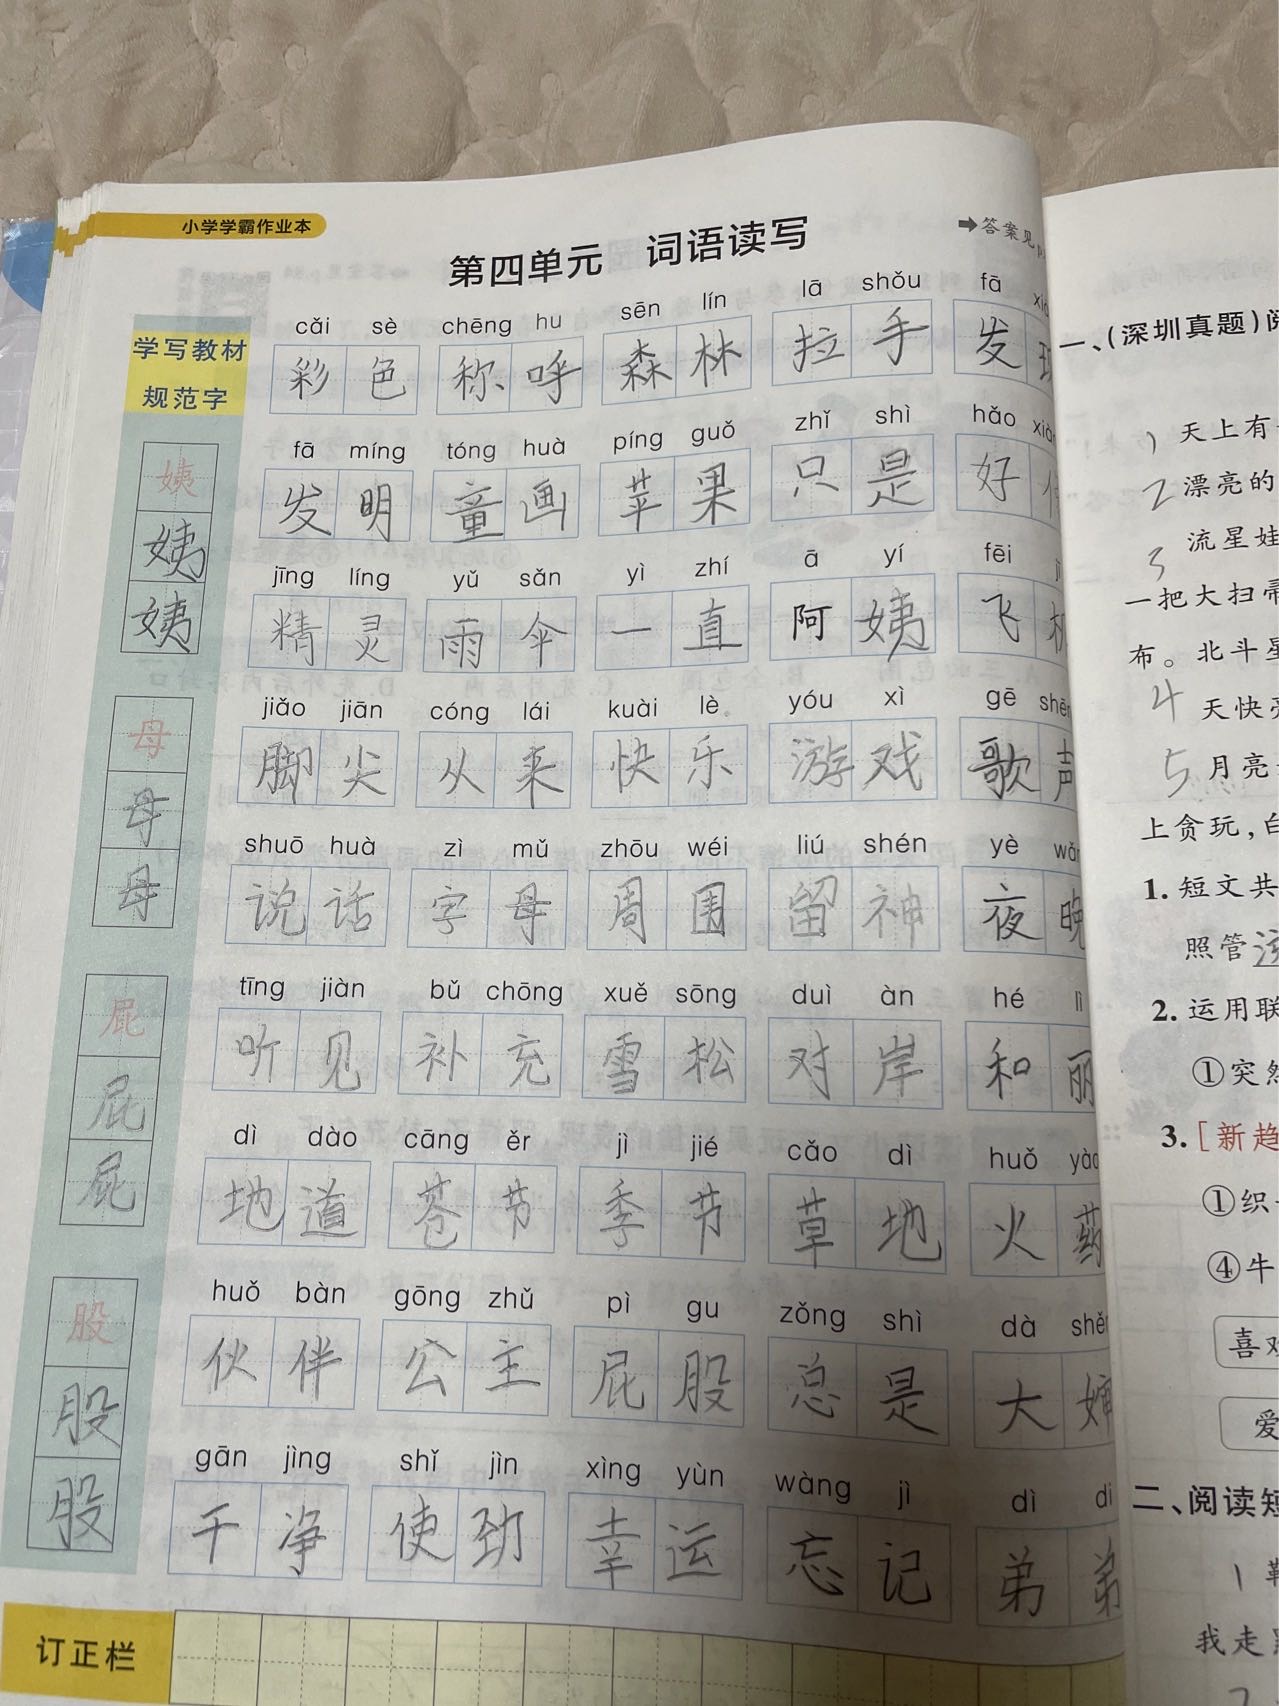 小学学霸作业本
第四单元 词语读写
➡答案见
学写教材
规范字
姨
姨
姨
母
母
母
屁
屁
屁
股
股
股
cǎi sè chēng hu sēn lín lā shǒu fā
彩色 称呼 森林 拉手 发
fā míng tóng huà píng guǒ zhǐ shì hǎo
发明 童画 苹果 只是 好
jīng líng yǔ sǎn yì zhí ā yí fēi
精灵 雨伞 一直 阿姨 飞
jiǎo jiān cóng lái kuài lè yóu xì gē
脚尖 从来 快乐 游戏 歌声
shuō huà zì mǔ zhōu wéi liú shén yè
说话 字母 周围 留神 夜晚
tīng jiàn bǔ chōng xuě sōng duì àn hé lì
听见 补充 雪松 对岸 和丽
dì dào cāng ěr jì jié cǎo dì huǒ
地道 苍节 季节 草地 火药
huǒ bàn gōng zhǔ pì gu zǒng shì dà
伙伴 公主 屁股 总是 大
gān jìng shǐ jìn xìng yùn wàng jì dì di
干净 使劲 幸运 忘记 弟弟
订正栏
一、(深圳真题)
1 天上有
2 漂亮的
3 流星娃
一把大扫帚
布。北斗星
4 天快亮
5 月亮
上贪玩,白
1. 短文共
照管
2. 运用联
①突然
3. [新趋
①织
④牛
喜欢
爱
二、阅读短
1
我走
2